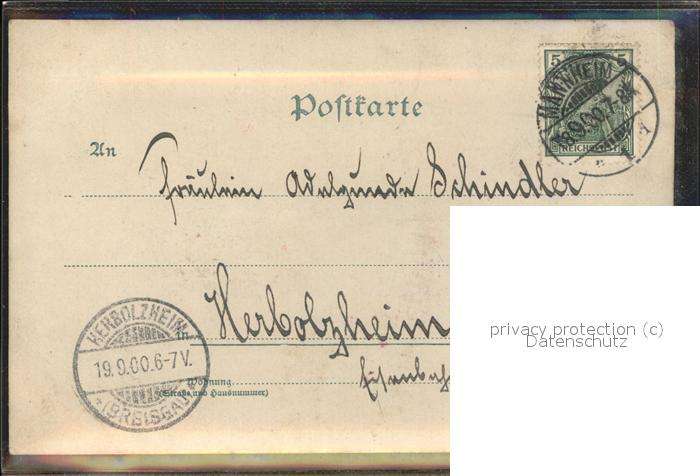 Postkarte
5 5
MANNHEIM
18.9.00.7-8N.
REICHSPOST
An
Fräulein Adelgunde Schindler
privacy protection (c)
Datenschutz
in
Herbolzheim
HERBOLZHEIM
19.9.00.6-7V.
(BREISGAU)
Wohnung
(Straße und Hausnummer)